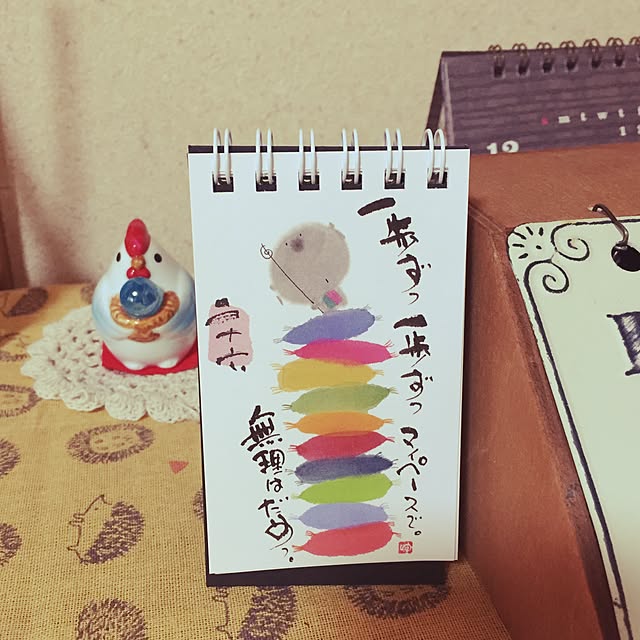 一歩ずつ一歩ずつマイペースで。
無理はだめっ。
二十六
12
s m t w t